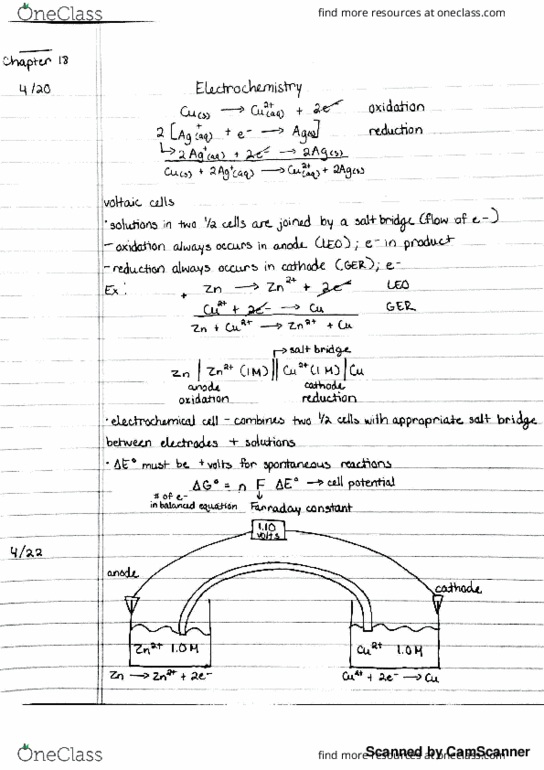 OneClass
find more resources at oneclass.com
Chapter 18
4/20
Electrochemistry
Cu(s) → Cu²⁺(aq) + 2e⁻ oxidation
2 [Ag⁺(aq) + e⁻ → Ag(s)] reduction
↳ 2Ag⁺(aq) + 2e⁻ → 2Ag(s)
Cu(s) + 2Ag⁺(aq) → Cu²⁺(aq) + 2Ag(s)
voltaic cells
• solutions in two 1/2 cells are joined by a salt bridge (flow of e-)
- oxidation always occurs in anode (LEO); e⁻ in product
- reduction always occurs in cathode (GER); e⁻
Ex: + Zn → Zn²⁺ + 2e⁻ LEO
Cu²⁺ + 2e⁻ → Cu GER
Zn + Cu²⁺ → Zn²⁺ + Cu
→ salt bridge
Zn | Zn²⁺ (1M) || Cu²⁺ (1M) | Cu
anode cathode
oxidation reduction
• electrochemical cell - combines two 1/2 cells with appropriate salt bridge
between electrodes + solutions
• ΔE° must be + volts for spontaneous reactions
ΔG° = n F ΔE° → cell potential
# of e-
in balanced equation Farraday constant
4/22
1.10
volts
anode
cathode
Zn²⁺ 1.0M
Cu²⁺ 1.0M
Zn → Zn²⁺ + 2e⁻
+ 2e⁻ → Cu
OneClass
find more resources at oneclass.com
Scanned by CamScanner